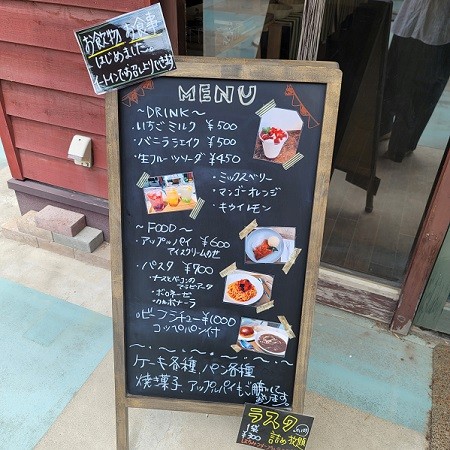 お飲物 お食事
はじめました
イートインでお召し上がりできます
MENU
～DRINK～
・いちごミルク ￥500
・バニラシェイク ￥500
・生フルーツソーダ ￥450
・ミックスベリー
・マンゴーオレンジ
・キウイレモン
～FOOD～
・アップルパイ ￥600
アイスクリームのせ
・パスタ ￥900
・ナスとベーコンの
アラビアータ
・ボロネーゼ
・カルボナーラ
ビーフシチュー ￥1000
コッペパン付
ケーキ各種、パン各種
焼き菓子 アップルパイもご購入
ラスク
1袋
￥300
詰め放題